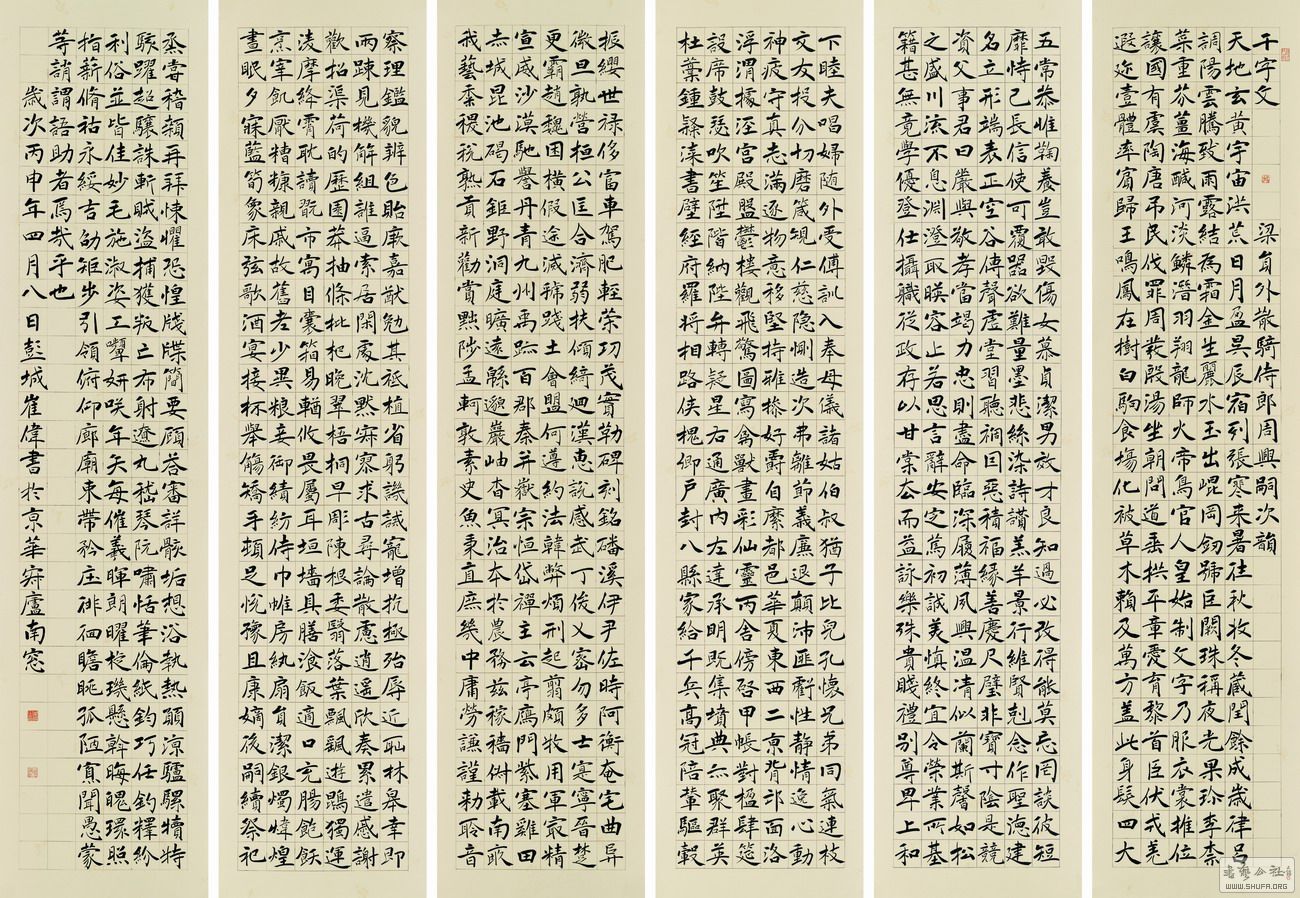 千字文 梁員外散騎侍郎周興嗣次韻
天地玄黃宇宙洪荒日月盈昃辰宿列張寒来暑往秋收冬藏閏餘成歲律呂
調陽雲騰致雨露結為霜金生麗水玉出崐岡劒號巨闕珠稱夜光果珍李柰
菜重芥薑海鹹河淡鱗潛羽翔龍師火帝鳥官人皇始制文字乃服衣裳推位
讓國有虞陶唐弔民伐罪周發殷湯坐朝問道垂拱平章愛育黎首臣伏戎羌
遐迩壹體率賓歸王鳴鳳在樹白駒食場化被草木賴及萬方盖此身髮四大
五常恭惟鞠養豈敢毀傷女慕貞潔男效才良知過必改得能莫忘罔談彼短
靡恃己長信使可覆器欲難量墨悲絲染詩讚羔羊景行維賢剋念作聖德建
名立形端表正空谷傳聲虛堂習聽禍因惡積福緣善慶尺璧非寶寸陰是競
資父事君曰嚴與敬孝當竭力忠則盡命臨深履薄夙興温凊似蘭斯馨如松
之盛川流不息淵澄取暎容止若思言辭安定篤初誠美慎終宜令榮業所基
籍甚無竟學優登仕攝職從政存以甘棠去而益詠樂殊貴賤禮别尊卑上和
下睦夫唱婦随外受傅訓入奉母儀諸姑伯叔猶子比兒孔懷兄弟同氣連枝
交友投分切磨箴規仁慈隐惻造次弗離節義廉退顛沛匪虧性靜情逸心動
神疲守真志滿逐物意移堅持雅操好爵自縻都邑華夏東西二京背邙面洛
浮渭據涇宮殿盤鬱樓觀飛驚圖寫禽獸畫彩仙靈丙舍傍啓甲帳對楹肆筵
設席鼓瑟吹笙陞階納陛弁轉疑星右通廣内左達承明既集墳典亦聚群英
杜藁鍾隸漆書壁經府羅将相路俠槐卿戶封八縣家給千兵高冠陪輦驅轂
振纓世禄侈富車駕肥輕策功茂實勒碑刻銘磻溪伊尹佐時阿衡奄宅曲阜
微旦孰營桓公匡合濟弱扶傾綺迴漢惠說感武丁俊乂密勿多士寔寧晉楚
更霸趙魏困橫假途滅虢踐土會盟何遵約法韓弊煩刑起翦頗牧用軍最精
宣威沙漠馳譽丹青九州禹跡百郡秦并嶽宗恒岱禪主云亭鴈門紫塞雞田
赤城昆池碣石鉅野洞庭曠遠緜邈巖岫杳冥治本於農務兹稼穡俶載南畝
我藝黍稷税熟貢新勸賞黜陟孟軻敦素史魚秉直庶幾中庸勞謙謹勅聆音
察理鑑貌辨色貽厥嘉猷勉其祗植省躬譏誡寵增抗極殆辱近恥林皋幸即
兩疎見機解組誰逼索居閑處沈默寂寥求古尋論散慮逍遥欣奏累遣慼謝
歡招渠荷的歷園莽抽條枇杷晚翠梧桐早彫陳根委翳落葉飄颻遊鵾獨運
凌摩絳霄耽讀翫市寓目囊箱易輶攸畏屬耳垣墻具膳湌飯適口充腸飽飫
烹宰飢厭糟糠親戚故舊老少異粮妾御績紡侍巾帷房紈扇員潔銀燭煒煌
晝眠夕寐藍笋象床弦歌酒宴接杯舉觴矯手頓足悅豫且康嫡後嗣續祭祀
烝嘗稽顙再拜悚懼恐惶牋牒簡要顧答審詳骸垢想浴執熱願涼驢騾犢特
駭躍超驤誅斬賊盜捕獲叛亡布射遼丸嵇琴阮嘯恬筆倫紙鈞巧任釣釋紛
利俗並皆佳妙毛施淑姿工顰妍咲年矢每催羲暉朗曜璇璣懸斡晦魄環照
指薪脩祜永綏吉劭矩步引領俯仰廊廟束帶矜庄徘徊瞻眺孤陋寡聞愚蒙
等誚謂語助者焉哉乎也
歲次丙申年四月八日彭城崔偉書於京華寂廬南窓
WWW.SHUFA.ORG